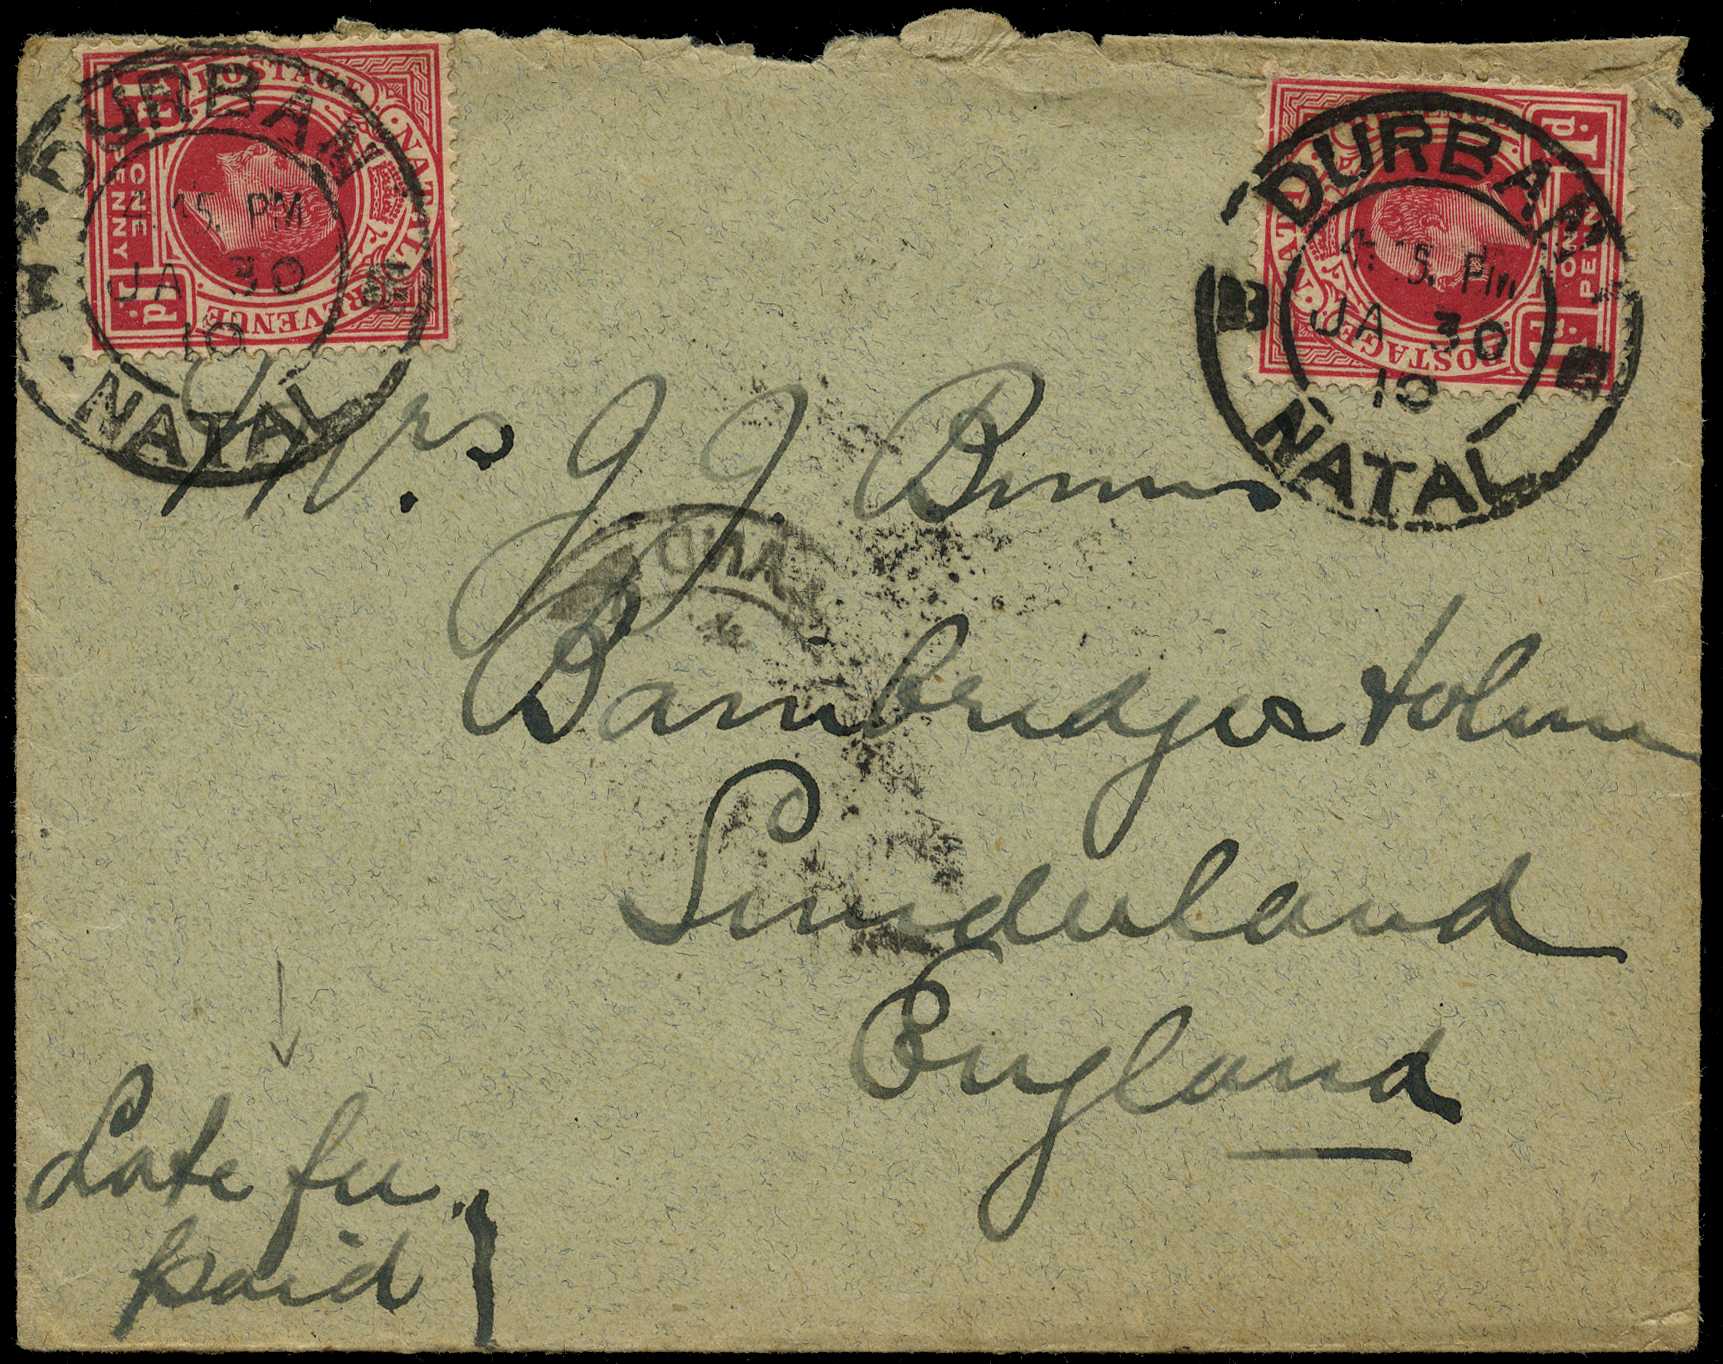 DURBAN
4.15. PM
JA 30
10
NATAL
POSTAGE
NATAL
REVENUE
1d.
ONE
PENNY
1d.
DURBAN
4.15. PM
JA 30
10
NATAL
POSTAGE
1d.
ONE
PENNY
1d.
Mrs J J. Binns
Bainbridge Holme
Sunderland
England
Late fee
paid